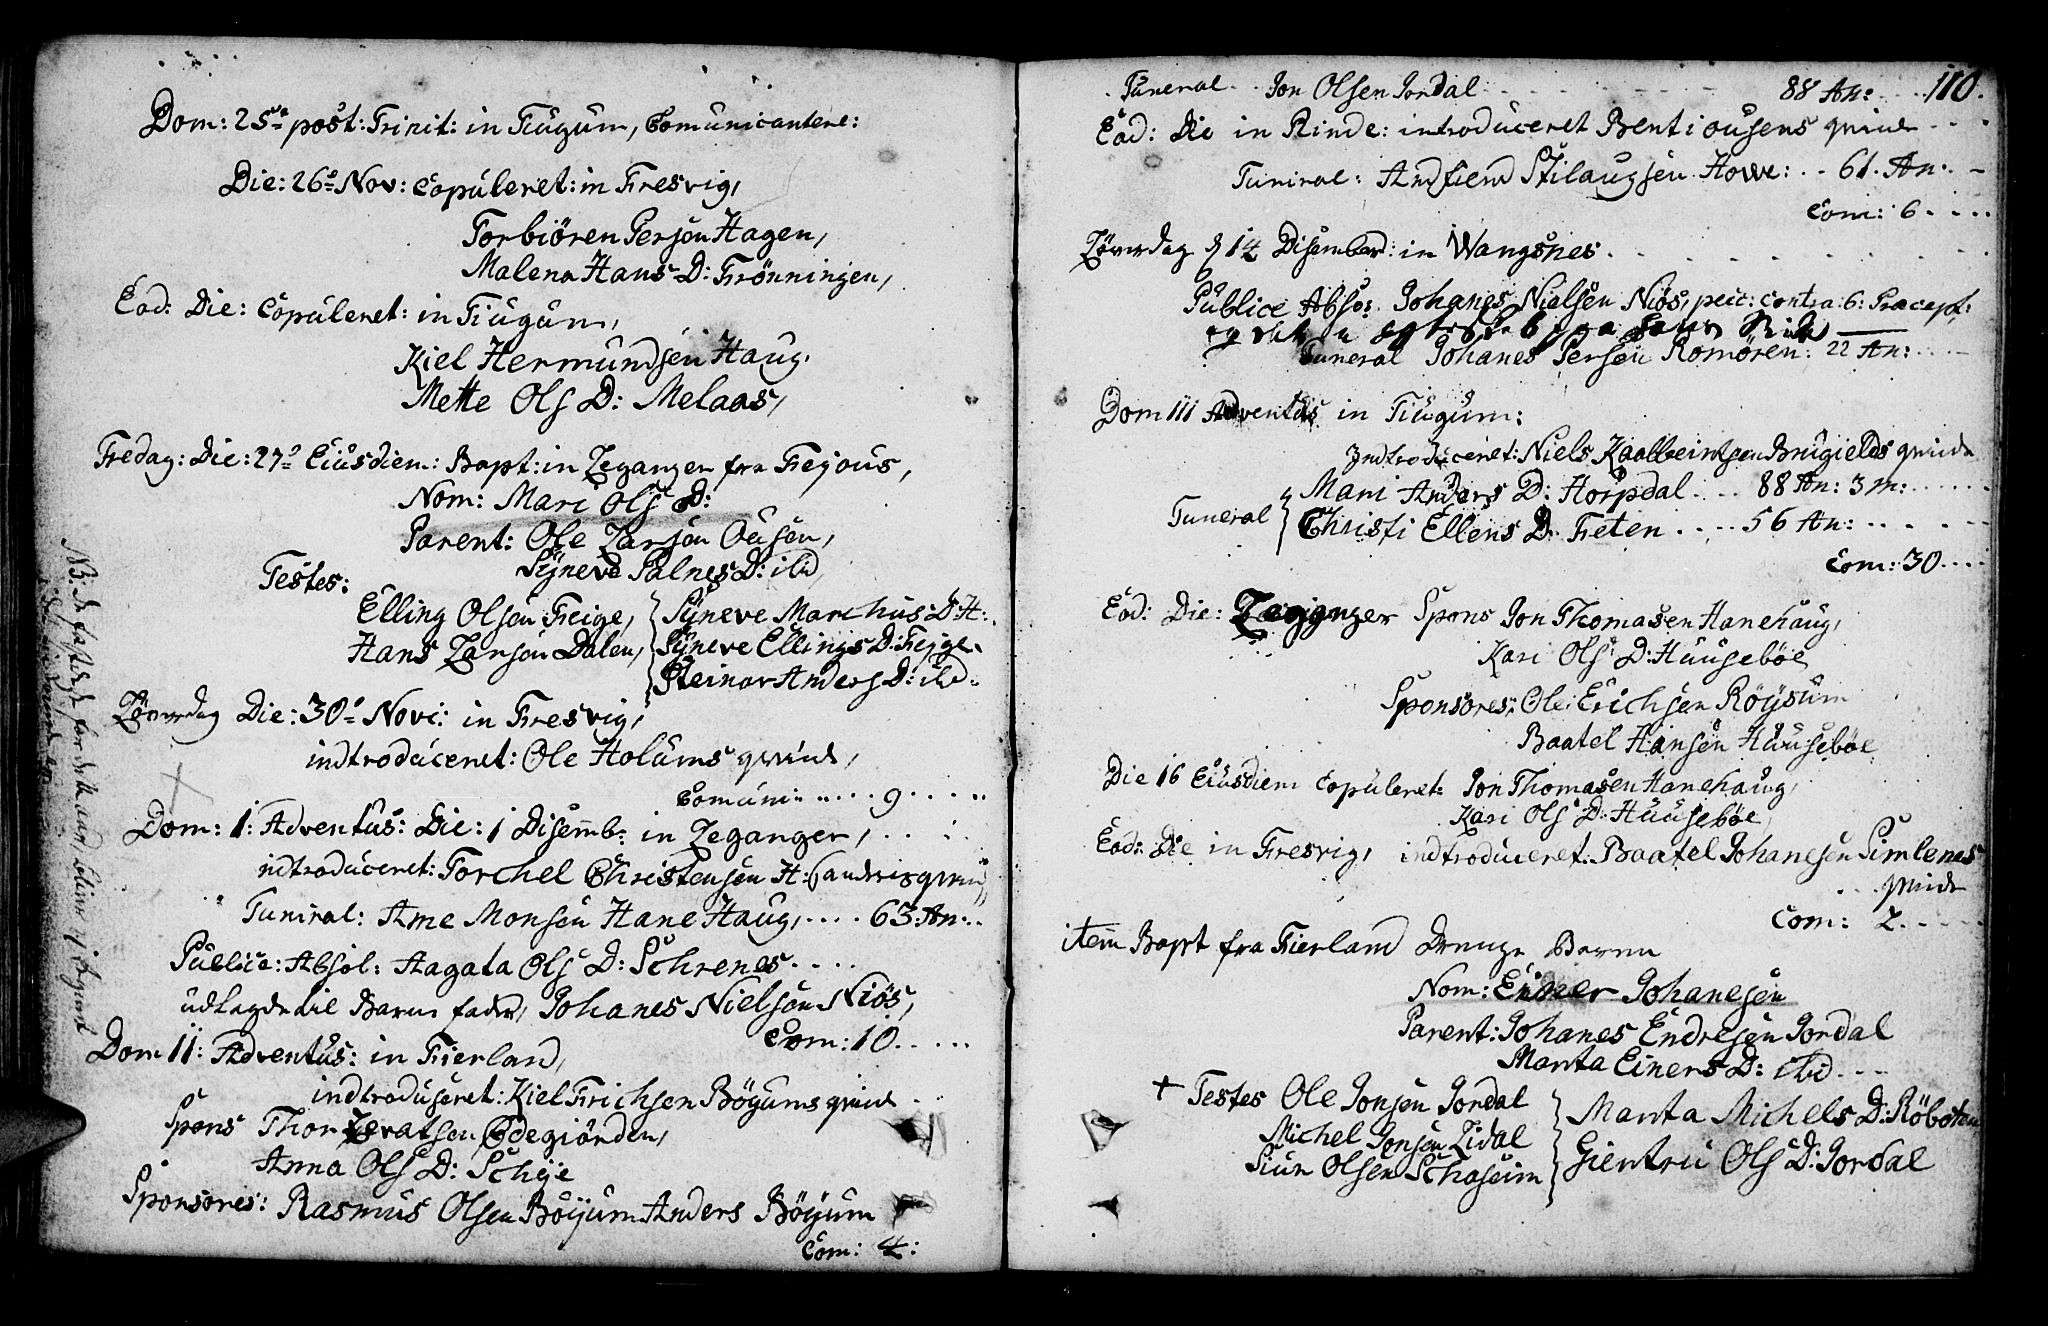 Dom: 25de post: Trinit: in Tiugum, Comunicantere:
Die: 26de Nov: Copuleret: in Fresvig,
Torbiören Persön Hagen,
Malena Hans D: Frönningen,
Eod: Die: Copuleret: in Tiugum,
Kiel Hermundsen Haug,
Mette Ols D: Melaas,
Fredag: Die: 27de Eiusdiem: Bapt: in Leganger fra Fejous,
Nom: Mari Ols D:
Parent: Ole Larsön Ousen,
Syneve Palnes D: ibid
Testes:
Elling Olsen Feige, Syneve Marchus: D: H:
Hans Larsön Dalen, Syneve Ellings D: Fejge.
Steinor Anders D: ibd.
Löverdag Die: 30de Novi: in Fresvig,
indtroduceret: Ole Holums qvinde,
Comuni: 9
Dom: 1: Adventus: Die: 1 Disemb: in Leganger,
indtroduceret: Torchel Christensen H: Sandvigs qvin
Funiral: Arne Monsen Hane Haug, 63 An:
Publice: Absol: Aagata Ols D: Schrenes
udlagde til Barne fader, Johanes Nielsön Niös,
Com: 10
Dom II: Adventus: in Fierland,
indtroduseret: Kiel Erichsen Böyums qvinde
Spons Thor Levatsen Ödegiörden,
Anna Ols D: Scheje
Sponsores: Rasmus Olsen Böyum Anders Böyum
Com: 4:
110.
Funeral Jon Olsen Jordal 88 An:
Eod: Die in Rinde: introduceret Bent iousens qvinde
Funiral: Anfiend Stilaugsen Howe: 61. An:
Com: 6
Löverdag d 14 Disember: in Wangsnes
Publice Abso: Johanes Nielsen Niös, pecc: contra: 6: Præcept:
Funeral Johanes Persen Romören: 22 An:
Dom III Adventus in Tiugum:
Indtroduceret: Niels Kaalbeintsen Brugields qvinde
Funeral Mari Anders D: Horpdal 88 An: 3 m:
Christi Ellens D: Feten 56 An:
Com: 30
Eod: Die: Leganger Spons Jon Thomasen Hanehaug,
Kari Ols D: Huuseböe
Sponsores: Ole Erichsen Röysum
Baatel Hansen Huuseböe
Die 16 Eiusdiem Copuleret: Jon Thomasen Hanehaug,
Kari Ols D: Huuseböe,
Eod: Die in Fresvig, indtroduceret: Baatel Johanesen Simlenes
qvinde
Com: 2
item Bapt fra Fierland Drenge Barn
Nom: Einer Johanesen
Parent: Johanes Endresen Jordal
Marita Einers D: ibid
+ Testes Ole Jonsen Jordal Marita Michels D: Röboten
Michel Jonsen Lidal Gientru Ols D: Jordal
Siur Olsen Schaseim